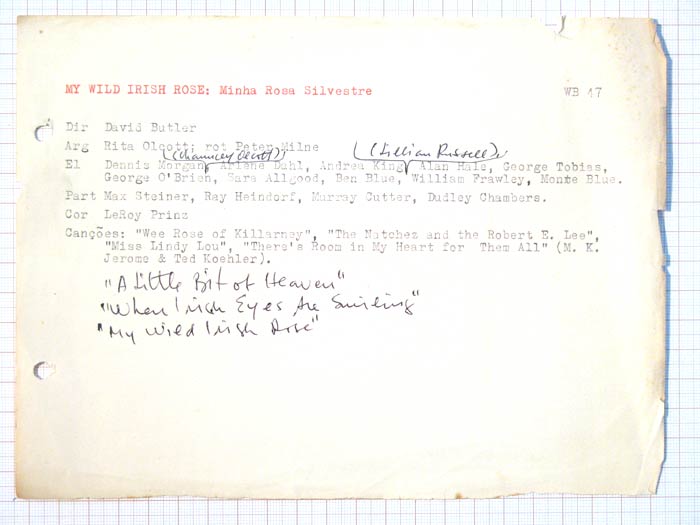 MY WILD IRISH ROSE: Minha Rosa Silvestre WB 47
Dir David Butler
Arg Rita Olcott; rot Peter Milne
(Chauncey Olcott), (Lillian Russell),
El Dennis Morgan, Arlene Dahl, Andrea King, Alan Hale, George Tobias,
George O'Brien, Sara Allgood, Ben Blue, William Frawley, Monte Blue.
Part Max Steiner, Ray Heindorf, Murray Cutter, Dudley Chambers.
Cor LeRoy Prinz
Canções: "Wee Rose of Killarney", "The Natchez and the Robert E. Lee",
"Miss Lindy Lou", "There's Room in My Heart for Them All" (M. K.
Jerome & Ted Koehler).
"A Little Bit of Heaven"
"When Irish Eyes Are Smiling"
"My Wild Irish Rose"